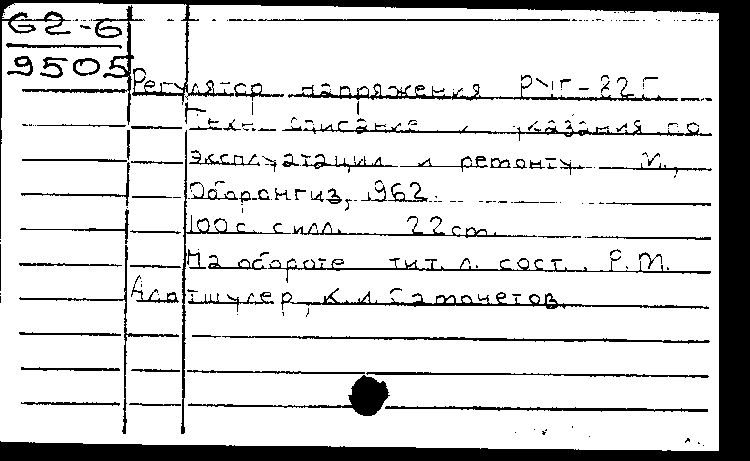 62-6
9505
Регулятор напряжения РУГ-82Г.
Техн. описание и указания по
эксплуатации и ремонту. М.,
Оборонгиз, 1962.
100 с. с илл. 22 cm.
На обороте тит. л. сост.: Р.М.
Альтшулер, К.И. Самочетов.